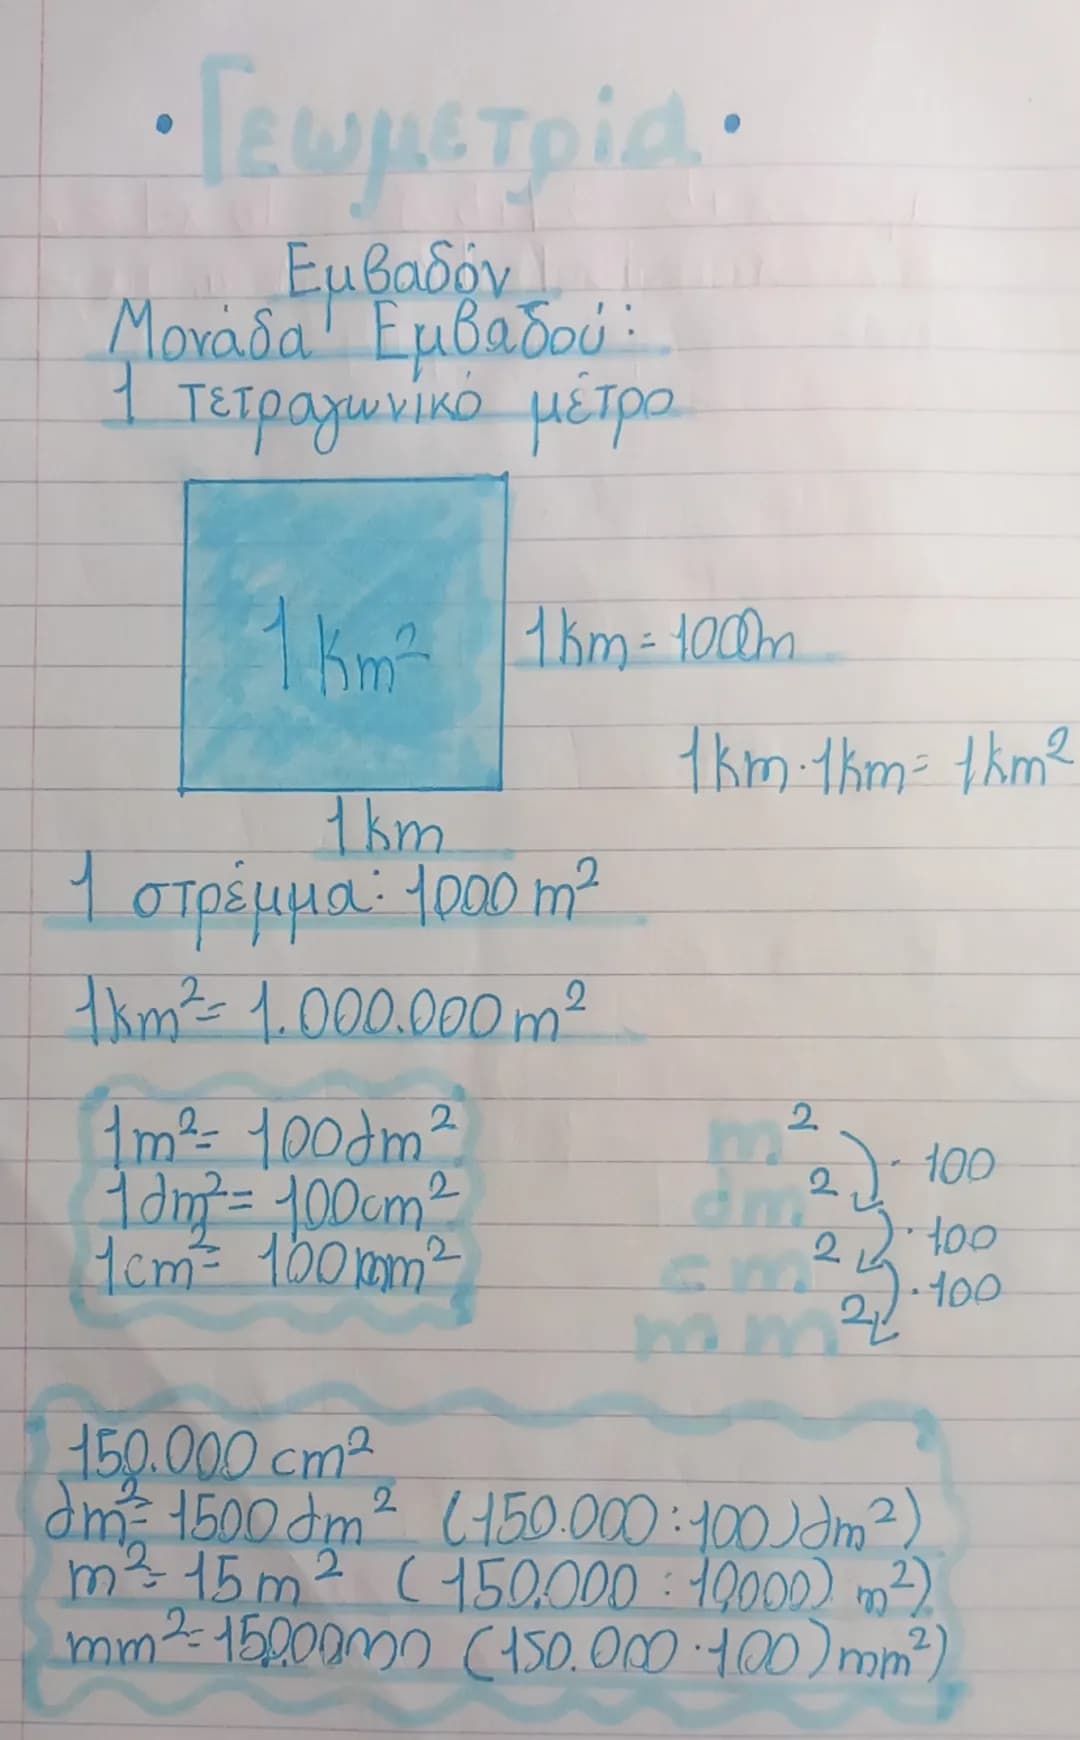 • Γεωμετρία •
Εμβαδόν
Μονάδα Εμβαδού:
1 τετραγωνικό μέτρο
1 km²
1km = 1000m
1km·1km= 1km²
1km
1 στρέμμα: 1000 m²
1km²= 1.000.000 m²
1m²= 100dm²
1dm²= 100cm²
1cm²= 100mm²
m²
· 100
dm²
· 100
cm²
· 100
mm²
150.000 cm²
dm²= 1500 dm² (150.000:100)dm²)
m²= 15m² (150.000 : 10000) m²)
(150.000·100)mm²)